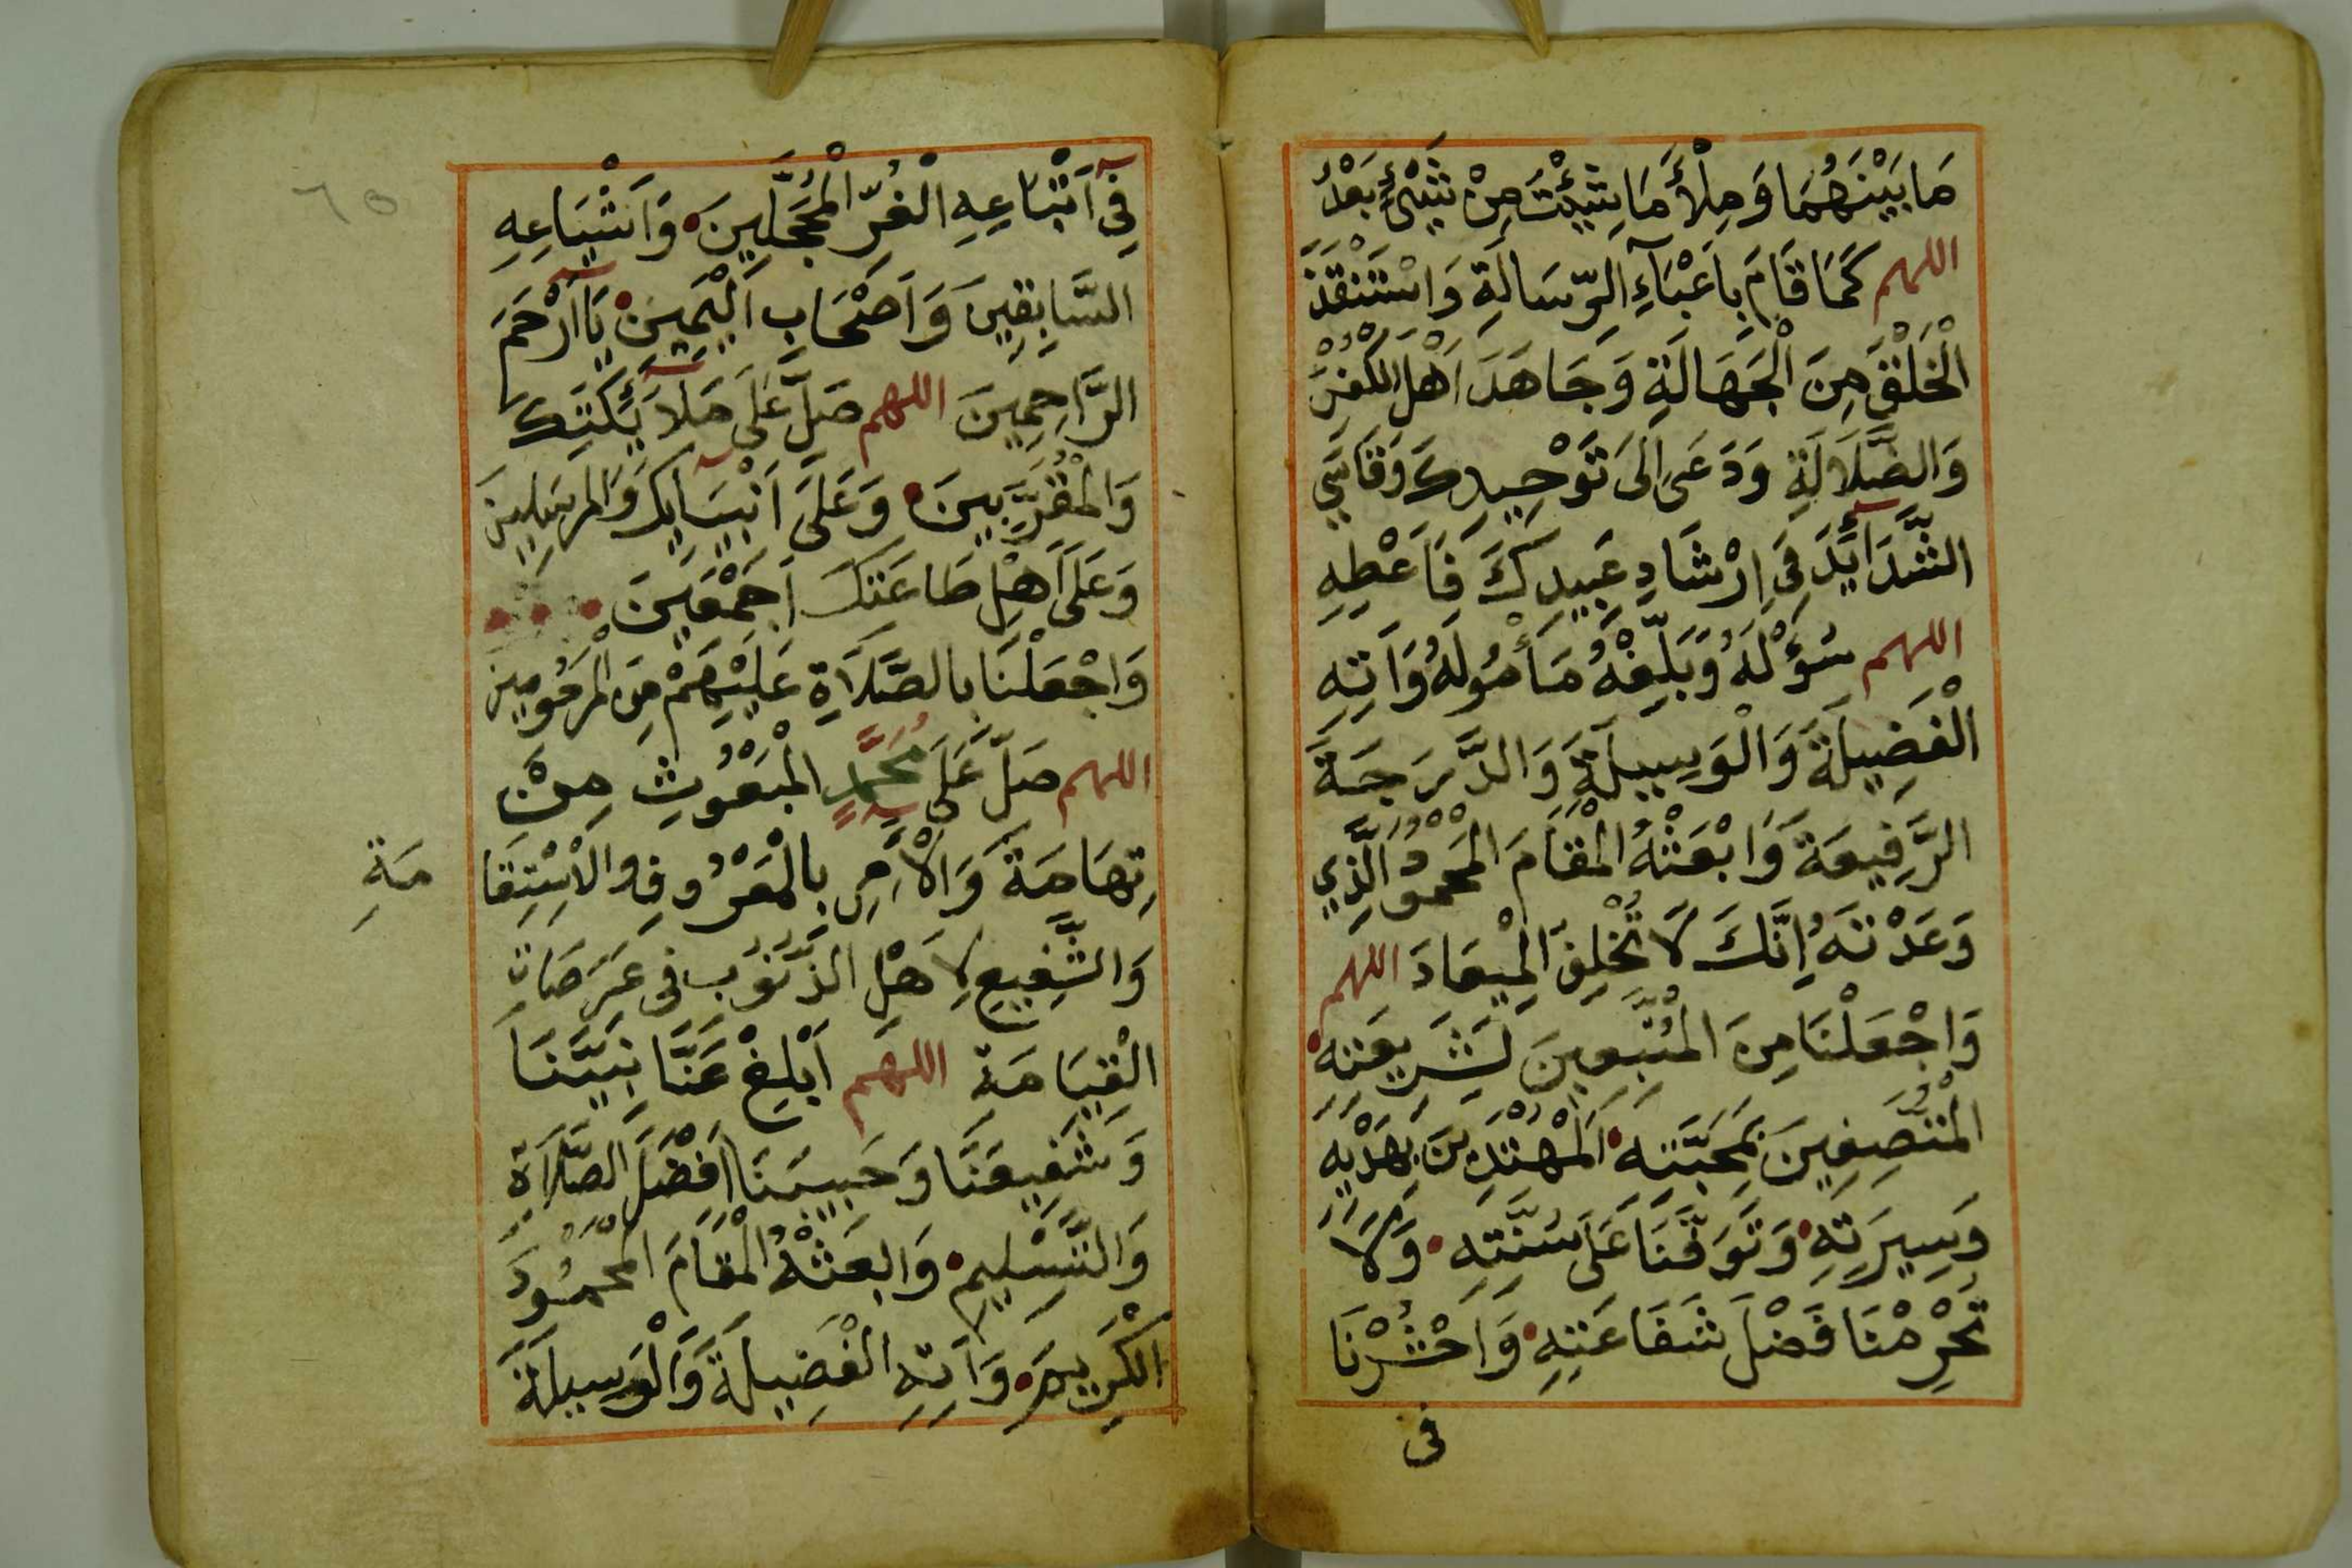 مَا بَيْنَهُمَا وَمِلْأَ مَا شِئْتَ مِنْ شَيْءٍ بَعْدُ
اللهم كَمَا قَامَ بِاَعْبَآءِ الرِّسَالَةِ وَاسْتَنْقَذَ
الْخَلْقَ مِنَ الْجَهَالَةِ وَجَاهَدَ اَهْلَ الْكُفْرِ
وَالضَّلَالَةِ وَدَعَى اِلَى تَوْحِيدِكَ وَقَاسَى
الشَّدَآئِدَ فِى اِرْشَادِ عَبِيدِكَ فَاَعْطِهِ
اللهم سُؤْلَهُ وَبَلِّغْهُ مَأْمُولَهُ وَاَتِهِ
الْفَضِيلَةَ وَالْوَسِيلَةَ وَالدَّرَجَةَ
الرَّفِيعَةَ وَابْعَثْهُ الْمَقَامَ الْمَحْمُودَ الَّذِي
وَعَدْتَهُ اِنَّكَ لَا تُخْلِفُ الْمِيعَادَ اللهم
وَاجْعَلْنَا مِنَ الْمُتَّبِعِينَ لِشَرِيعَتِهِ
الْمُتَّصِفِينَ بِمَحَبَّتِهِ الْمُهْتَدِينَ بِهَدْيِهِ
وَسِيرَتِهِ وَتَوَفَّنَا عَلَى سُنَّتِهِ وَلَا
تَحْرِمْنَا فَضْلَ شَفَاعَتِهِ وَاحْشُرْنَا
فى
٦٥
فِىٓ اَتْبَاعِهِ الْغُرِّ الْمُحَجَّلِينَ وَاَشْيَاعِهِ
السَّابِقِينَ وَاَصْحَابِ الْيَمِينِ يَآ اَرْحَمَ
الرَّاحِمِينَ اللهم صَلِّ عَلَى مَلَآئِكَتِكَ
وَالْمُقَرَّبِينَ وَعَلَىٓ اَنْبِيَآئِكَ وَالْمُرْسَلِينَ
وَعَلَى اَهْلِ طَاعَتِكَ اَجْمَعِينَ
وَاجْعَلْنَا بِالصَّلَاةِ عَلَيْهِمْ مِنَ الْمَرْحُومِينَ
اللهم صَلِّ عَلَى مُحَمَّدٍ الْمَبْعُوثِ مِنْ
تِهَامَةَ وَالْاَمِرِ بِالْمَعْرُوفِ وَالْاِسْتِقَا مَةِ
وَالشَّفِيعِ لِاَهْلِ الذُّنُوبِ فِى عَرَصَاتِ
الْقِيَامَةِ اللهم اَبْلِغْ عَنَّا نَبِيَّنَا
وَشَفِيعَنَا وَحَبِيبَنَا اَفْضَلَ الصَّلَاةِ
وَالتَّسْلِيمِ وَابعَثْهُ الْمَقَامَ الْمَحْمُودَ
الْكَرِيمَ وَاَتِهِ الْفَضِيلَةَ وَالْوَسِيلَةَ